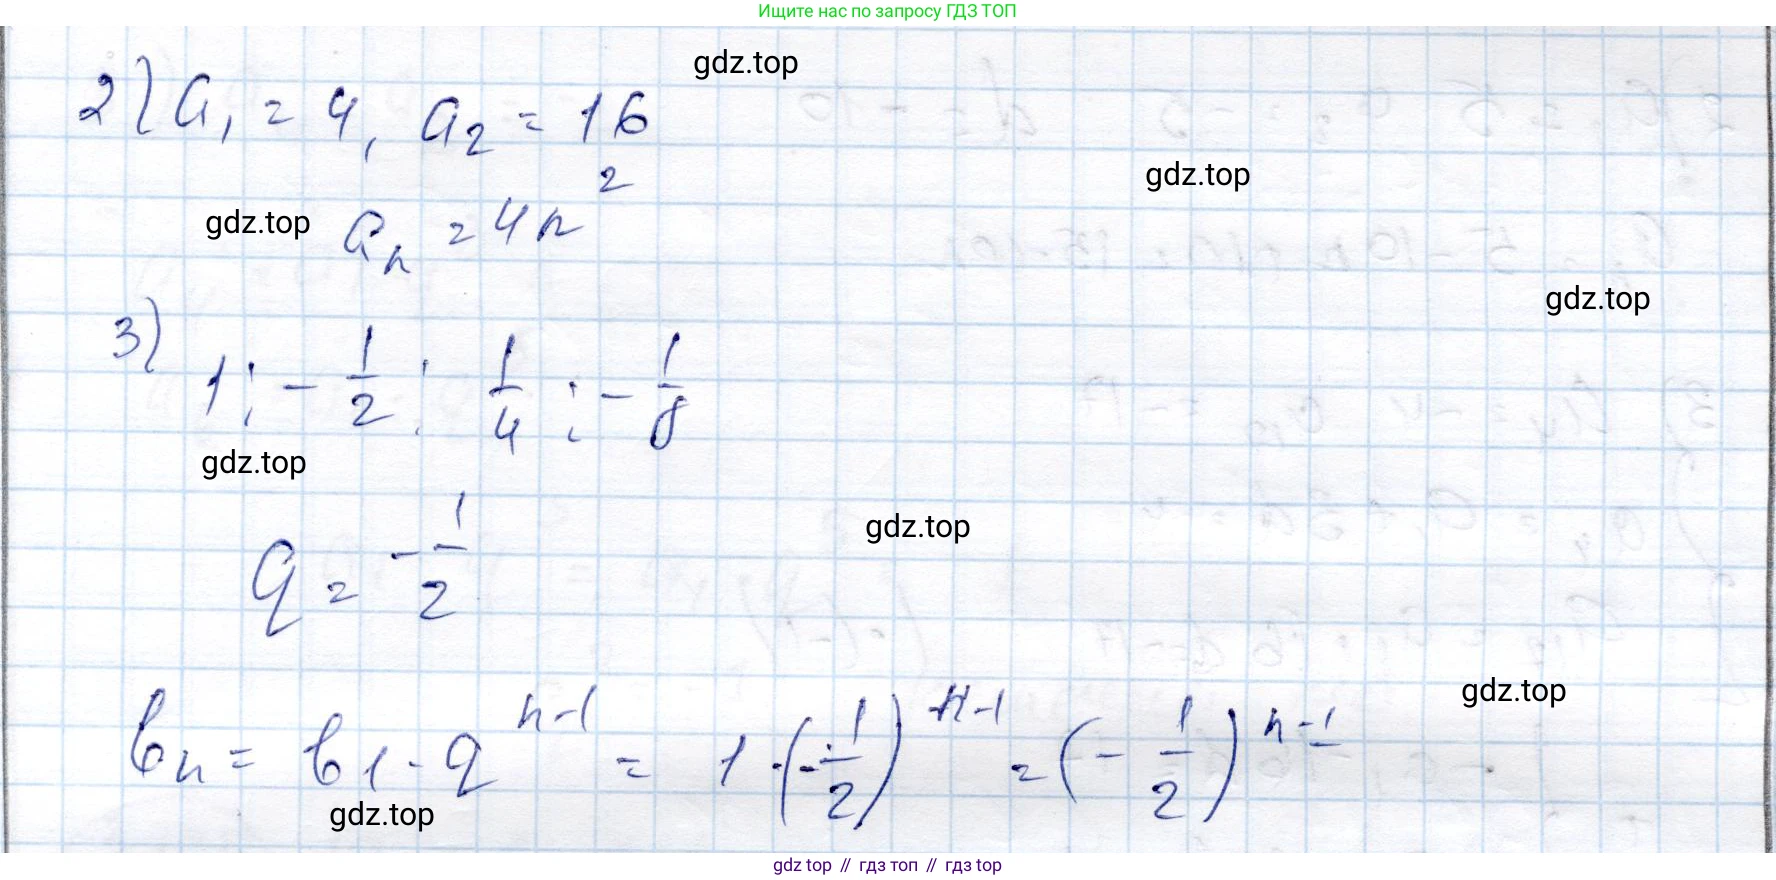 Ищите нас по запросу ГДЗ ТОП
gdz.top
2) a₁ = 4, a₂ = 16
gdz.top
gdz.top aₙ = 4n²
gdz.top
3) 1; -1/2; 1/4; -1/8
gdz.top
gdz.top
q = -1/2
gdz.top
bₙ = b₁ · q^(n-1) = 1 · (-1/2)^(n-1) = (-1/2)^(n-1)
gdz.top
gdz top // гдз топ // гдз top